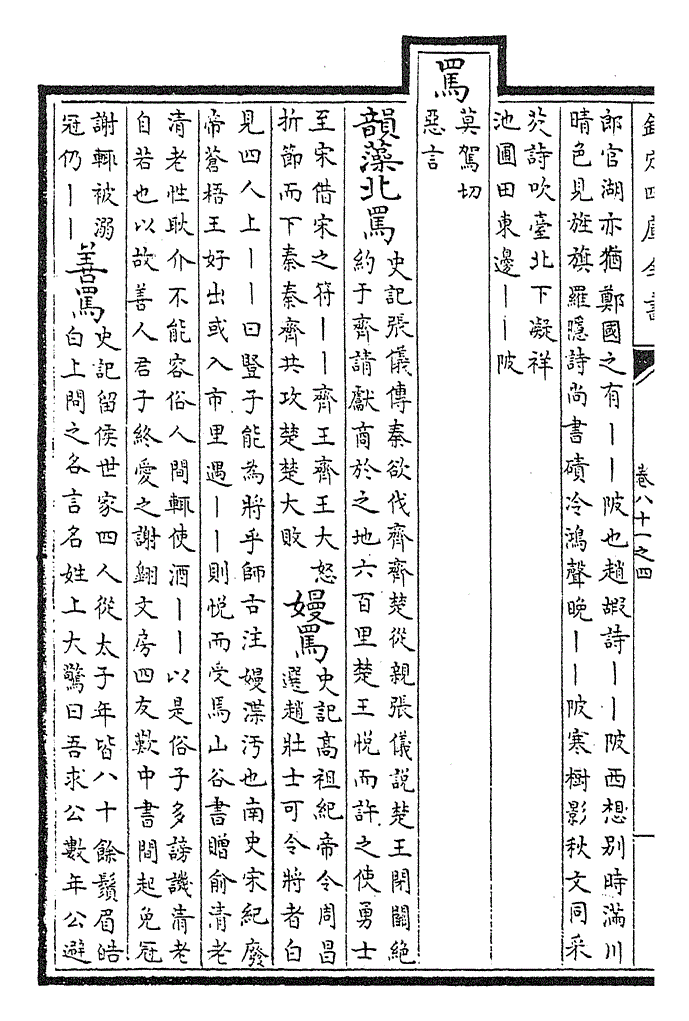 欽定四庫全書
卷八十一之四
郎官湖亦猶鄭國之有｜｜陂也趙嘏詩｜｜陂西想别時滿川
晴色見旌旗羅隱詩尚書磧冷鴻聲晚｜｜陂寒樹影秋文同采
芡詩吹臺北下凝祥
池圃田東邊｜｜陂
罵
莫駕切
惡言
韻藻北罵
史記張儀傳秦欲伐齊齊楚從親張儀說楚王閉關絶
約于齊請獻商於之地六百里楚王悅而許之使勇士
至宋借宋之符｜｜齊王齊王大怒
折節而下秦秦齊共攻楚楚大敗
嫚罵
史記高祖紀帝令周昌
選趙壯士可令將者白
見四人上｜｜曰豎子能為將乎師古注嫚渫汚也南史宋紀廢
帝蒼梧王好出或入市里遇｜｜則悅而受馬山谷書贈俞清老
清老性耿介不能容俗人間輒使酒｜｜以是俗子多謗譏清老
自若也以故善人君子終愛之謝翺文房四友歎中書間起免冠
謝輒被溺
冠仍｜｜
善罵
史記留侯世家四人從太子年皆八十餘鬚眉皓
白上問之各言名姓上大驚曰吾求公數年公避